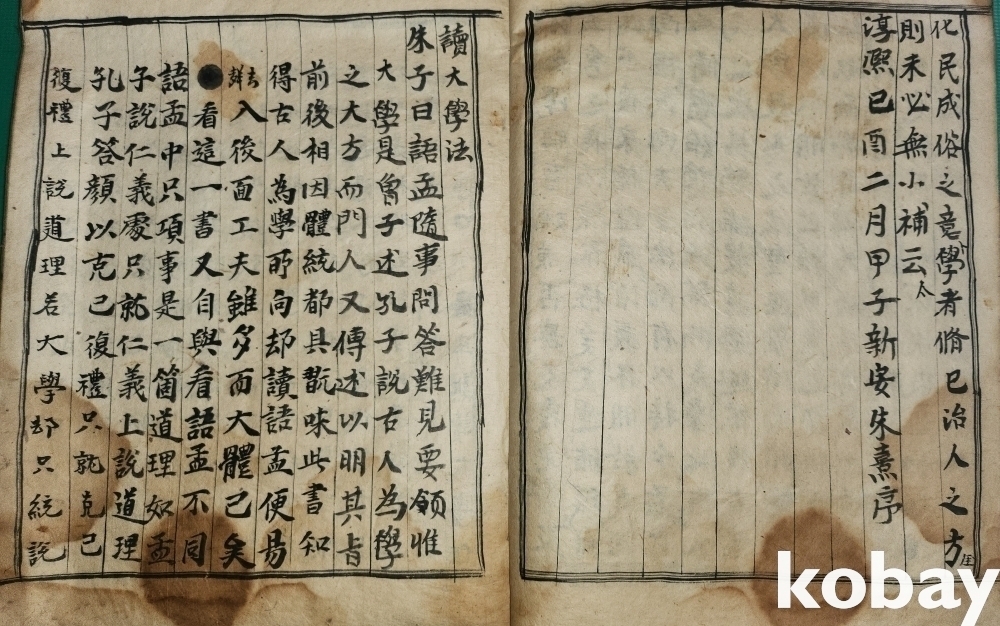 化民成俗之意學者脩已治人之方
則未必無小補云
淳熙已酉二月甲子新安朱熹序
讀大學法
朱子曰語孟隨事問答難見要領惟
大學是曾子述孔子說古人為學
之大方而門人又傳述以明其旨
前後相因體統都具翫味此書知
得古人為學所向却讀語孟便易
入後面工夫雖多而大體已矣
看這一書又自與看語孟不同
語孟中只項事是一箇道理如孟
子說仁義處只就仁義上說道理
孔子答顏以克已復禮只就克已
復禮上說道理若大學却只統說
kobay